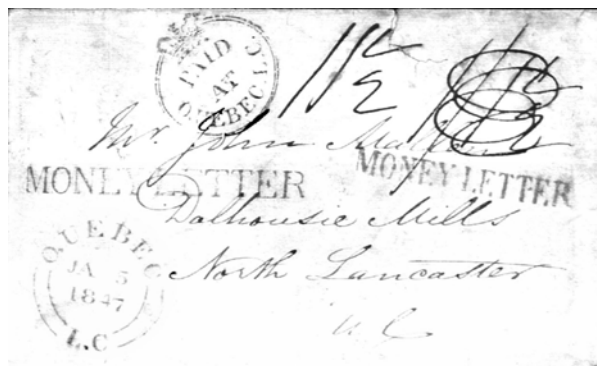 PAID
AT
QUEBEC L.C.
Mr. John
MONEY LETTER
MONEY LETTER
Dalhousie Mills
North Lancaster
U C
QUEBEC
JA 5
1847
L.C